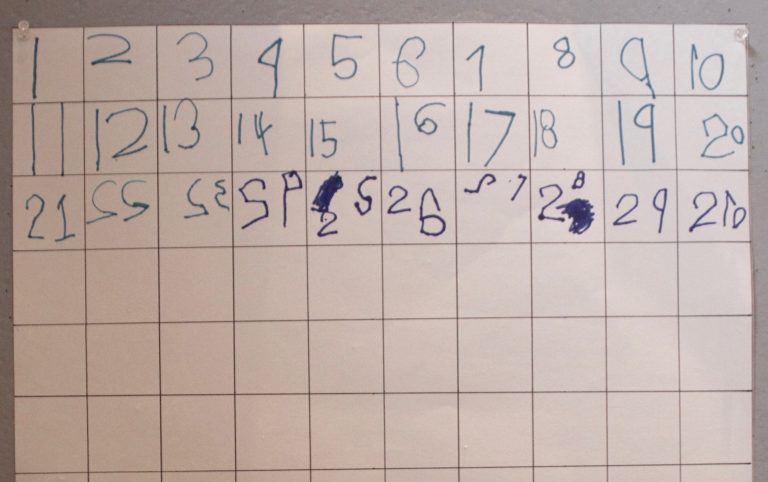 1 2 3 4 5 6 7 8 9 10
11 12 13 14 15 16 17 18 19 20
21 22 23 24 25 26 27 28 29 210